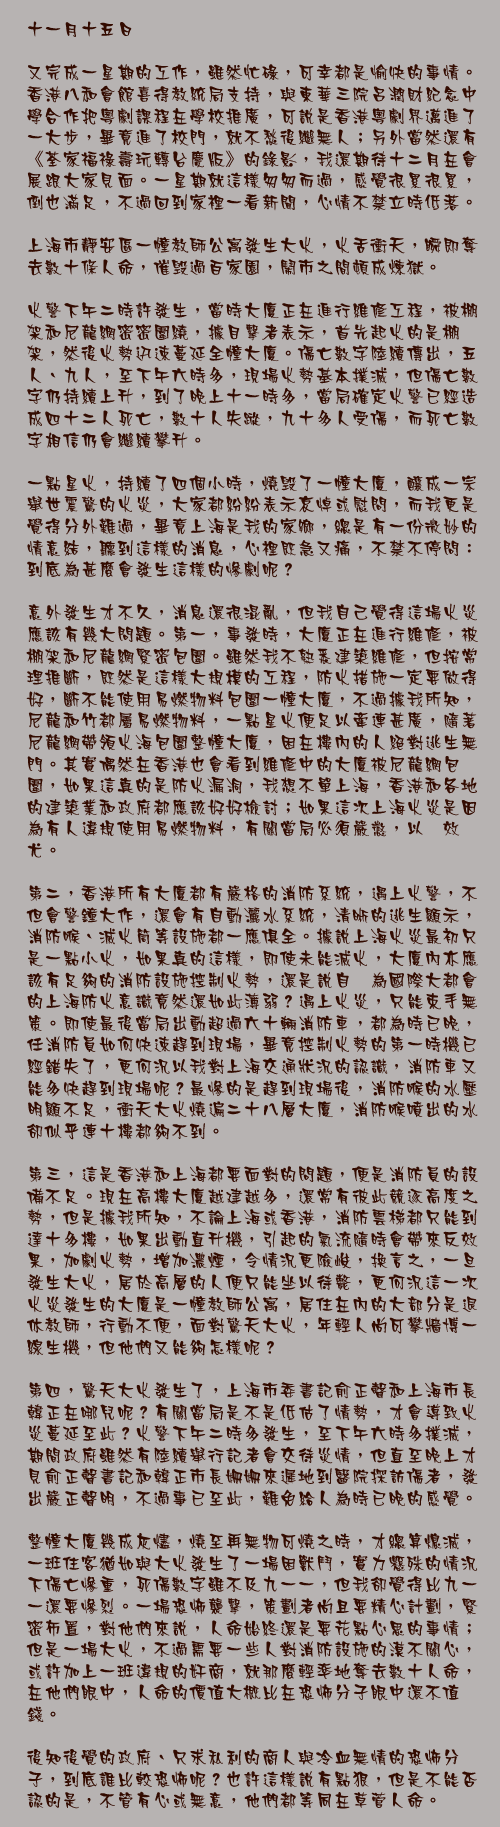 十一月十五日
又完成一星期的工作，雖然忙碌，可幸都是愉快的事情。
香港八和會館喜得教統局支持，與東華三院呂潤財紀念中
學合作把粵劇課程在學校推廣，可說是香港粵劇界邁進了
一大步，畢竟進了校門，就不愁後繼無人；另外當然還有
《荃家福祿壽玩轉台慶版》的錄影，我還期待十二月在會
展跟大家見面。一星期就這樣匆匆而過，感覺很累很累，
倒也滿足，不過回到家裡一看新聞，心情不禁立時低落。
上海市靜安區一幢教師公寓發生大火，火舌衝天，瞬即奪
去數十條人命，催毀過百家園，鬧市之間頓成煉獄。
火警下午二時許發生，當時大廈正在進行維修工程，被棚
架和尼龍網密密圍繞，據目擊者表示，首先起火的是棚
架，然後火勢迅速蔓延全幢大廈。傷亡數字陸續傳出，五
人、九人，至下午六時多，現場火勢基本撲滅，但傷亡數
字仍持續上升，到了晚上十一時多，當局確定火警已經造
成四十二人死亡，數十人失蹤，九十多人受傷，而死亡數
字相信仍會繼續攀升。
一點星火，持續了四個小時，燒毀了一幢大廈，釀成一宗
舉世震驚的火災，大家都紛紛表示哀悼或慰問，而我更是
覺得分外難過，畢竟上海是我的家鄉，總是有一份微妙的
情意結，聽到這樣的消息，心裡既急又痛，不禁不停問：
到底為甚麼會發生這樣的慘劇呢？
意外發生才不久，消息還很混亂，但我自己覺得這場火災
應該有幾大問題。第一，事發時，大廈正在進行維修，被
棚架和尼龍網緊密包圍。雖然我不熟悉建築維修，但按常
理推斷，既然是這樣大規模的工程，防火措施一定要做得
好，斷不能使用易燃物料包圍一幢大廈，不過據我所知，
尼龍和竹都屬易燃物料，一點星火便足以牽連甚廣，隨著
尼龍網帶領火海包圍整幢大廈，困在樓內的人絕對逃生無
門。其實偶然在香港也會看到維修中的大廈被尼龍網包
圍，如果這真的是防火漏洞，我想不單上海，香港和各地
的建築業和政府都應該好好檢討；如果這次上海火災是因
為有人違規使用易燃物料，有關當局必須嚴懲，以　效
尤。
第二，香港所有大廈都有嚴格的消防系統，遇上火警，不
但會警鐘大作，還會有自動灑水系統，清晰的逃生顯示，
消防喉、滅火筒等設施都一應俱全。據說上海火災最初只
是一點小火，如果真的這樣，即使未能滅火，大廈內亦應
該有足夠的消防設施控制火勢，還是說自　為國際大都會
的上海防火意識竟然還如此薄弱？遇上火災，只能束手無
策。即使最後當局出動超過六十輛消防車，都為時已晚，
任消防員如何快速趕到現場，畢竟控制火勢的第一時機已
經錯失了，更何況以我對上海交通狀況的認識，消防車又
能多快趕到現場呢？最慘的是趕到現場後，消防喉的水壓
明顯不足，衝天大火燒遍二十八層大廈，消防喉噴出的水
卻似乎連十樓都夠不到。
第三，這是香港和上海都要面對的問題，便是消防員的設
備不足。現在高樓大廈越建越多，還常有彼此競逐高度之
勢，但是據我所知，不論上海或香港，消防雲梯都只能到
達十多樓，如果出動直升機，引起的氣流隨時會帶來反效
果，加劇火勢，增加濃煙，令情況更險峻，換言之，一旦
發生大火，居於高層的人便只能坐以待斃，更何況這一次
火災發生的大廈是一幢教師公寓，居住在內的大部分是退
休教師，行動不便，面對驚天大火，年輕人尚可攀牆博一
線生機，但他們又能夠怎樣呢？
第四，驚天大火發生了，上海市委書記俞正聲和上海市長
韓正在哪兒呢？有關當局是不是低估了情勢，才會導致火
災蔓延至此？火警下午二時多發生，至下午六時多撲滅，
期間政府雖然有陸續舉行記者會交待災情，但直至晚上才
見俞正聲書記和韓正市長姍姍來遲地到醫院探訪傷者，發
出嚴正聲明，不過事已至此，難免給人為時已晚的感覺。
整幢大廈幾成灰燼，燒至再無物可燒之時，才總算熄滅，
一班住客猶如與大火發生了一場困獸鬥，實力懸殊的情況
下傷亡慘重，死傷數字雖不及九一一，但我卻覺得比九一
一還要慘烈。一場恐怖襲擊，策劃者尚且要精心計劃，緊
密布置，對他們來說，人命始終還是要花點心思的事情；
但是一場大火，不過需要一些人對消防設施的漠不關心，
或許加上一班違規的奸商，就那麼輕率地奪去數十人命，
在他們眼中，人命的價值大概比在恐怖分子眼中還不值
錢。
後知後覺的政府、只求私利的商人與冷血無情的恐怖分
子，到底誰比較恐怖呢？也許這樣說有點狠，但是不能否
認的是，不管有心或無意，他們都等同在草菅人命。